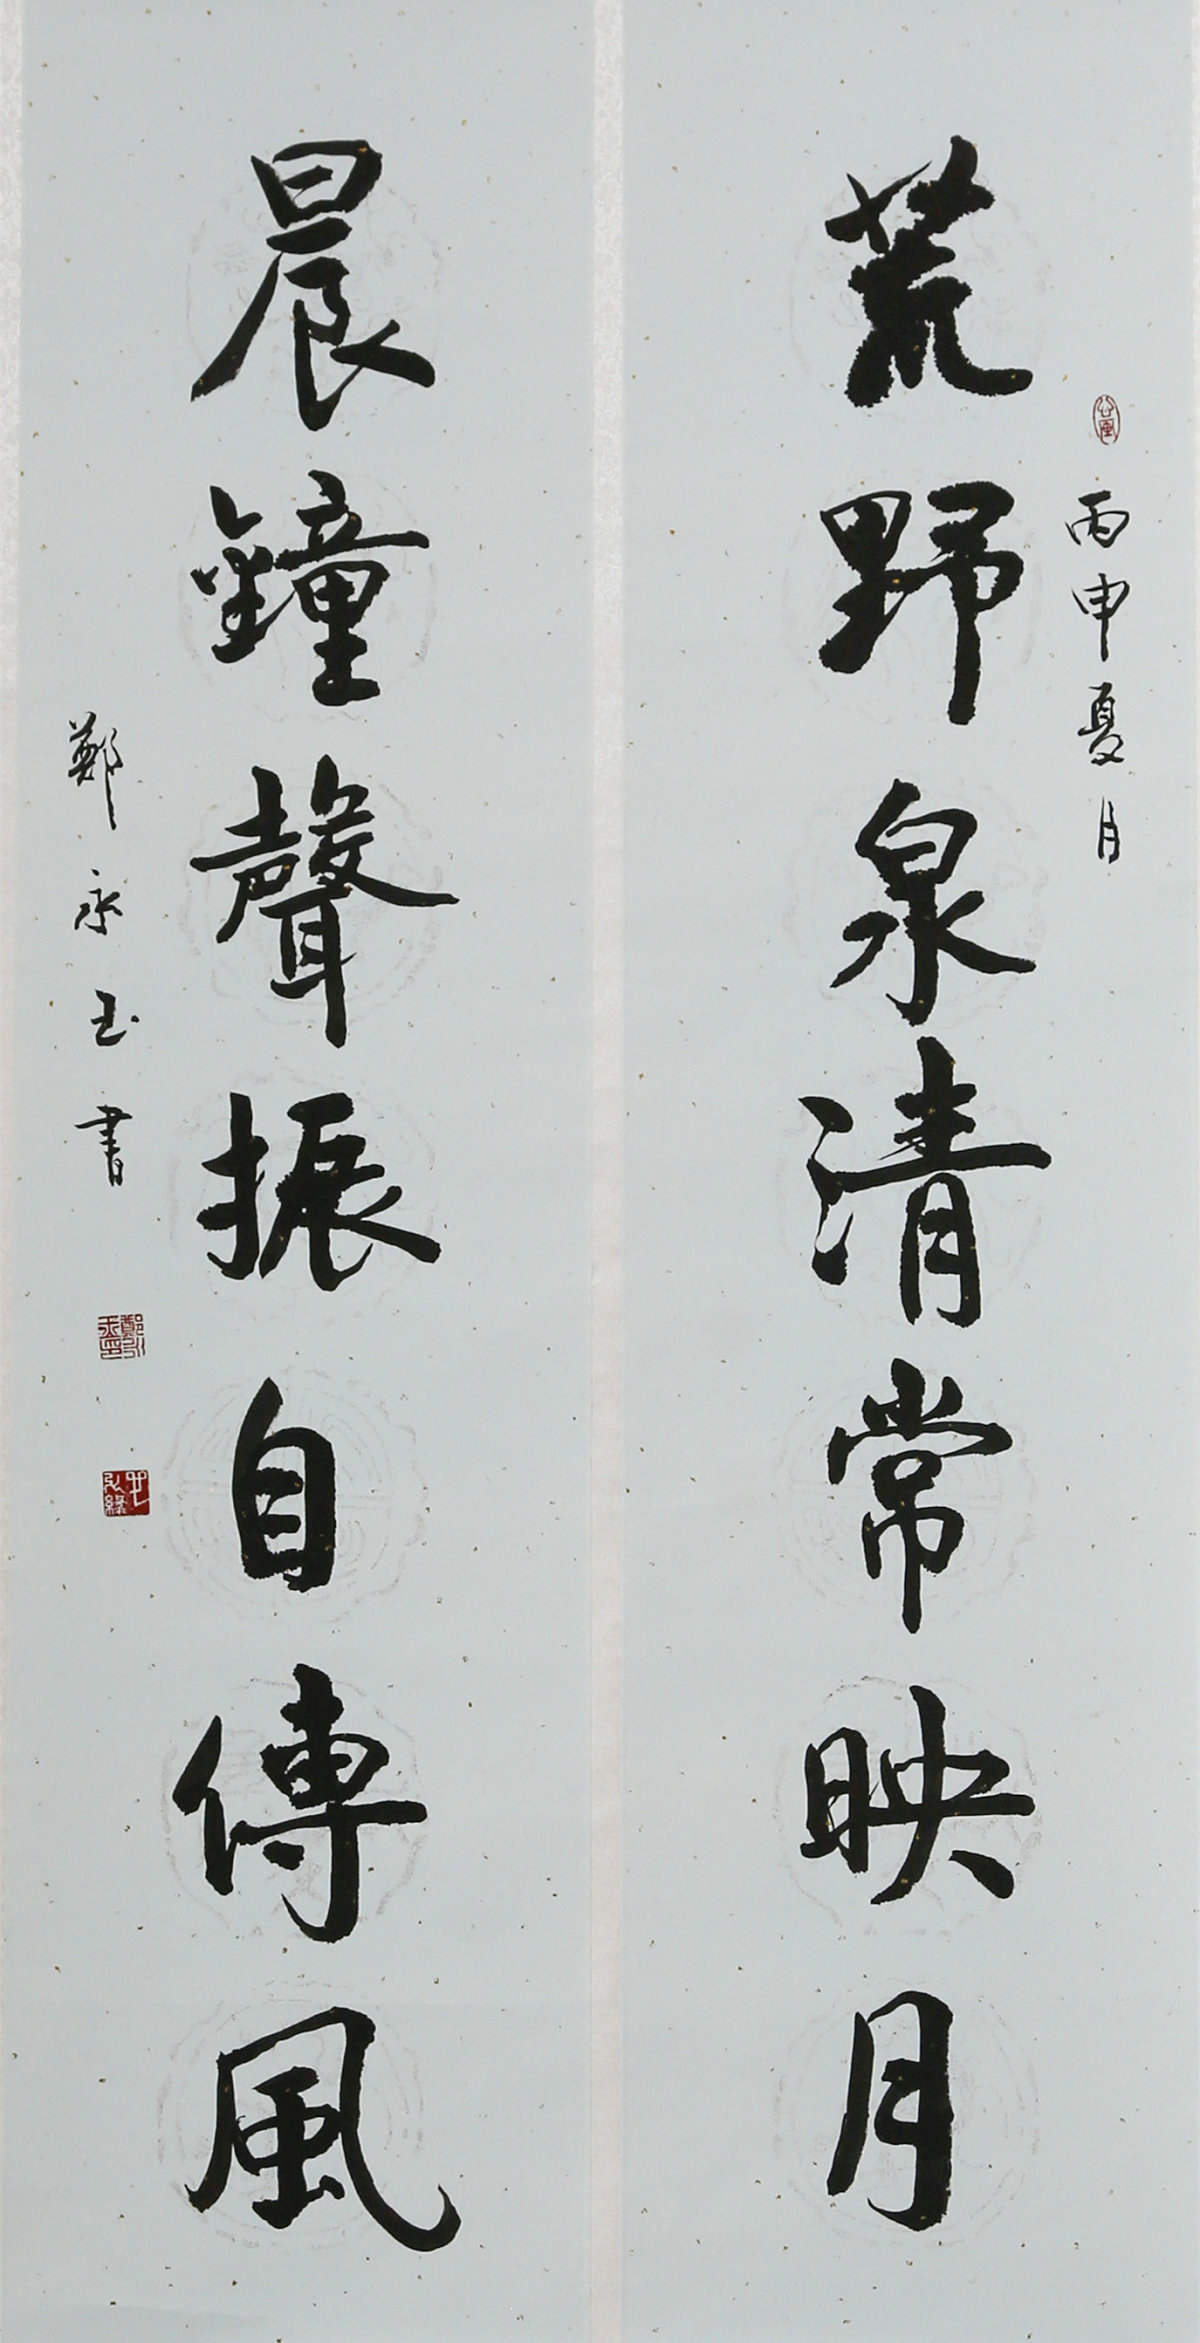 丙申夏月
荒野泉清常映月
晨鐘聲振自傳風
鄭永玉書